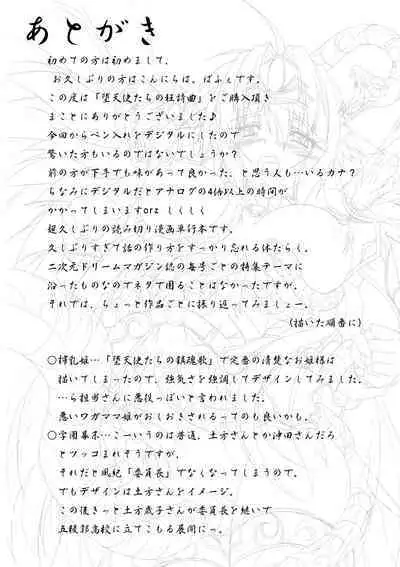 あとがき
初めての方は初めまして、
お久しぶりの方はこんにちは、ぱふぇです。
この度は「堕天使たちの狂詩曲」をご購入頂き
まことにありがとうございました♪
今回からペン入れをデジタルにしたので
驚いた方もいるのではないでしょうか？
前の方が下手でも味があって良かった、と思う人も…いるカナ？
ちなみにデジタルだとアナログの4倍以上の時間が
かかってしまいますorz しくしく
超久しぶりの読み切り漫画単行本です。
久しぶりすぎて話の作り方をすっかり忘れる体たらく。
二次元ドリームマガジン誌の毎号ごとの特集テーマに
沿ったものなのでネタで困ることはなかったですが。
それでは、ちょっと作品ごとに振り返ってみましょー。
（描いた順番に）
○搾乳姫…「堕天使たちの鎮魂歌」で定番の清楚なお姫様は
描いてしまったので、強気さを強調してデザインしてみました。
…ら担当さんに悪役っぽいと言われました。
悪いワガママ姫がおしおきされるってのも良いかも。
○学園幕末…こーいうのは普通、土方さんとか沖田さんだろ
とツッコまれそうですが、
それだと風紀「委員長」でなくなってしまうので。
でもデザインは土方さんをイメージ。
この後きっと土方歳子さんが委員長を継いで
五稜郭高校に立てこもる展開にっ。